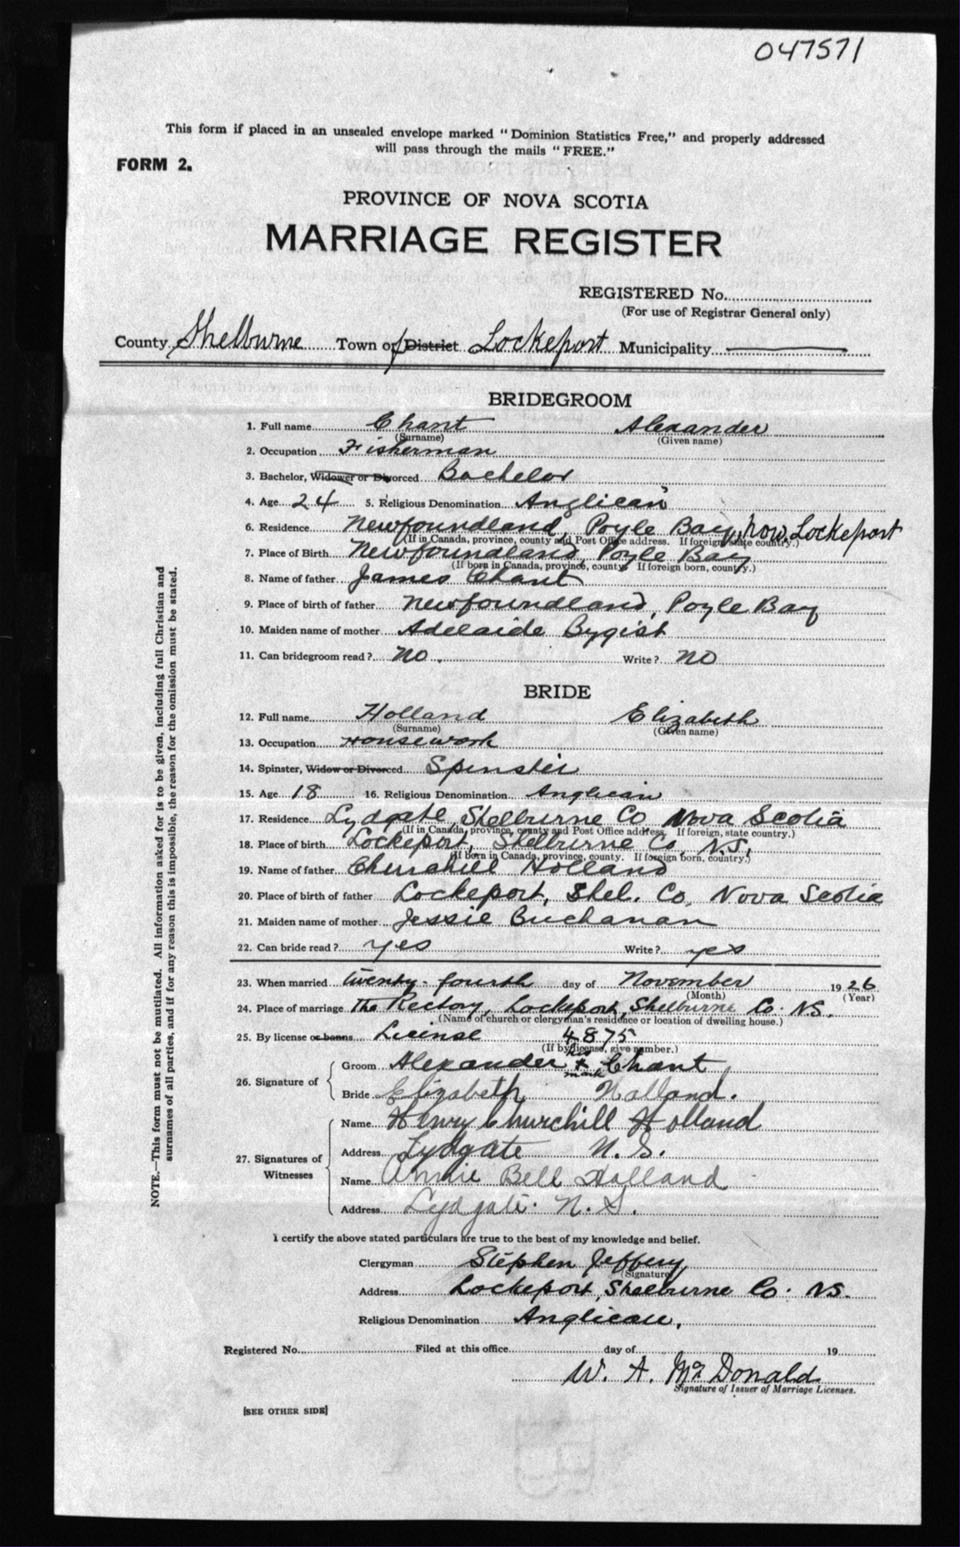 047571
This form if placed in an unsealed envelope marked "Dominion Statistics Free," and properly addressed
will pass through the mails "FREE."
FORM 2.
PROVINCE OF NOVA SCOTIA
MARRIAGE REGISTER
REGISTERED No.
(For use of Registrar General only)
County Shelburne Town of District Lockeport Municipality
BRIDEGROOM
1. Full name Chant Alexander
(Surname) (Given name)
2. Occupation Fisherman
3. Bachelor, Widower or Divorced Bachelor
4. Age 24 5. Religious Denomination Anglican
6. Residence Newfoundland, Poyle Bay, now Lockeport
(If in Canada, province, county and Post Office address. If foreign, state country.)
7. Place of Birth Newfoundland, Poyle Bay
(If born in Canada, province, county. If foreign born, country.)
8. Name of father James Chant
9. Place of birth of father Newfoundland, Poyle Bay
10. Maiden name of mother Adelaide Bygist
11. Can bridegroom read? No. Write? No
BRIDE
12. Full name Holland Elizabeth
(Surname) (Given name)
13. Occupation Housework
14. Spinster, Widow or Divorced Spinster
15. Age 18 16. Religious Denomination Anglican
17. Residence Lydgate, Shelburne Co Nova Scotia
(If in Canada, province, county and Post Office address. If foreign, state country.)
18. Place of birth Lockeport, Shelburne Co, N.S.
(If born in Canada, province, county. If foreign born, country.)
19. Name of father Churchill Holland
20. Place of birth of father Lockeport, Shel. Co, Nova Scotia
21. Maiden name of mother Jessie Buchanan
22. Can bride read? yes Write? yes
23. When married twenty-fourth day of November 1926
(Month) (Year)
24. Place of marriage The Rectory, Lockeport, Shelburne Co. NS.
(Name of church or clergyman's residence or location of dwelling house.)
25. By license or banns License 4875
(If by license, give number.)
26. Signature of Groom Alexander his x mark Chant
Bride Elizabeth Holland.
27. Signatures of Witnesses Name Henry Churchill Holland
Address Lydgate N. S.
Name Annie Bell Holland
Address Lydgate. N. S.
I certify the above stated particulars are true to the best of my knowledge and belief.
Clergyman Stephen Jeffery
(Signature)
Address Lockeport, Shelburne Co. NS.
Religious Denomination Anglican.
Registered No. Filed at this office day of 19
W. A. McDonald
Signature of Issuer of Marriage Licenses.
[SEE OTHER SIDE]
NOTE.—This form must not be mutilated. All information asked for is to be given, including full Christian and
surnames of all parties, and if for any reason this is impossible, the reason for the omission must be stated.